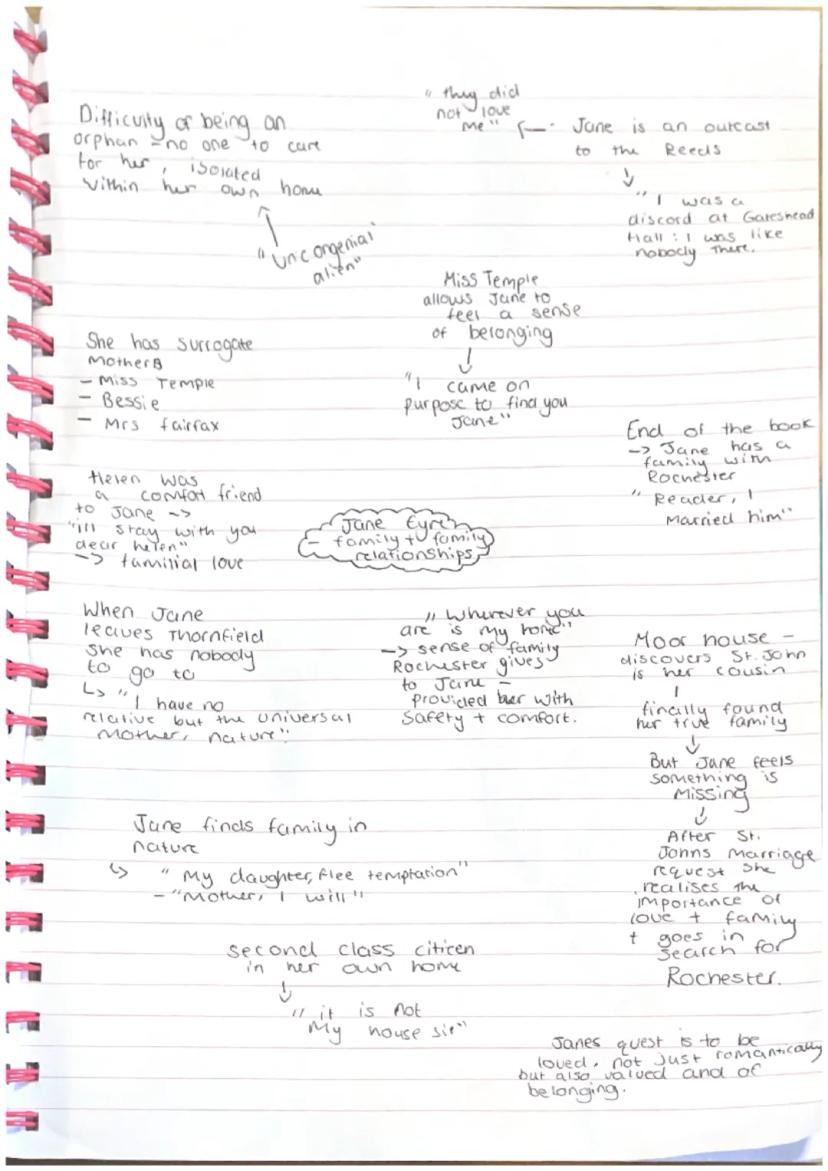 Difficulty of being an
orphan = no one to care
for her, isolated
within her own home
"uncongenial
alien"
"they did
not love
me"
Jane is an outcast
to the Reeds
"I was a
discord at Gateshead
Hall: I was like
nobody there.
Miss Temple
allows Jane to
feel a sense
of belonging
"I came on
purpose to find you
Jane"
She has surrogate
Mothers
- Miss Temple
- Bessie
- Mrs fairfax
End of the book
-> Jane has a
family with
Rochester
"Reader, I
Married him"
Helen was
a comfort friend
to Jane ->
"ill stay with you
dear helen"
-> familial love
Jane Eyre
- family + family
relationships
When Jane
leaves Thornfield
she has nobody
to go to
↳ "I have no
relative but the universal
Mother, nature".
"Wherever you
are is my home"
-> sense of family
Rochester gives
to Jane -
provided her with
Safety + comfort.
Moor house -
discovers St. John
is her cousin
finally found
her true family
But Jane feels
something is
Missing
After St.
Johns Marriage
request she
realises the
importance of
love + family
+ goes in
search for
Rochester.
Jane finds family in
nature
↳ "My daughter, flee temptation"
- "Mother, I will"
second class citicen
in her own home
"it is not
My house sir"
Janes quest is to be
loved, not just romantically
but also valued and of
belonging.